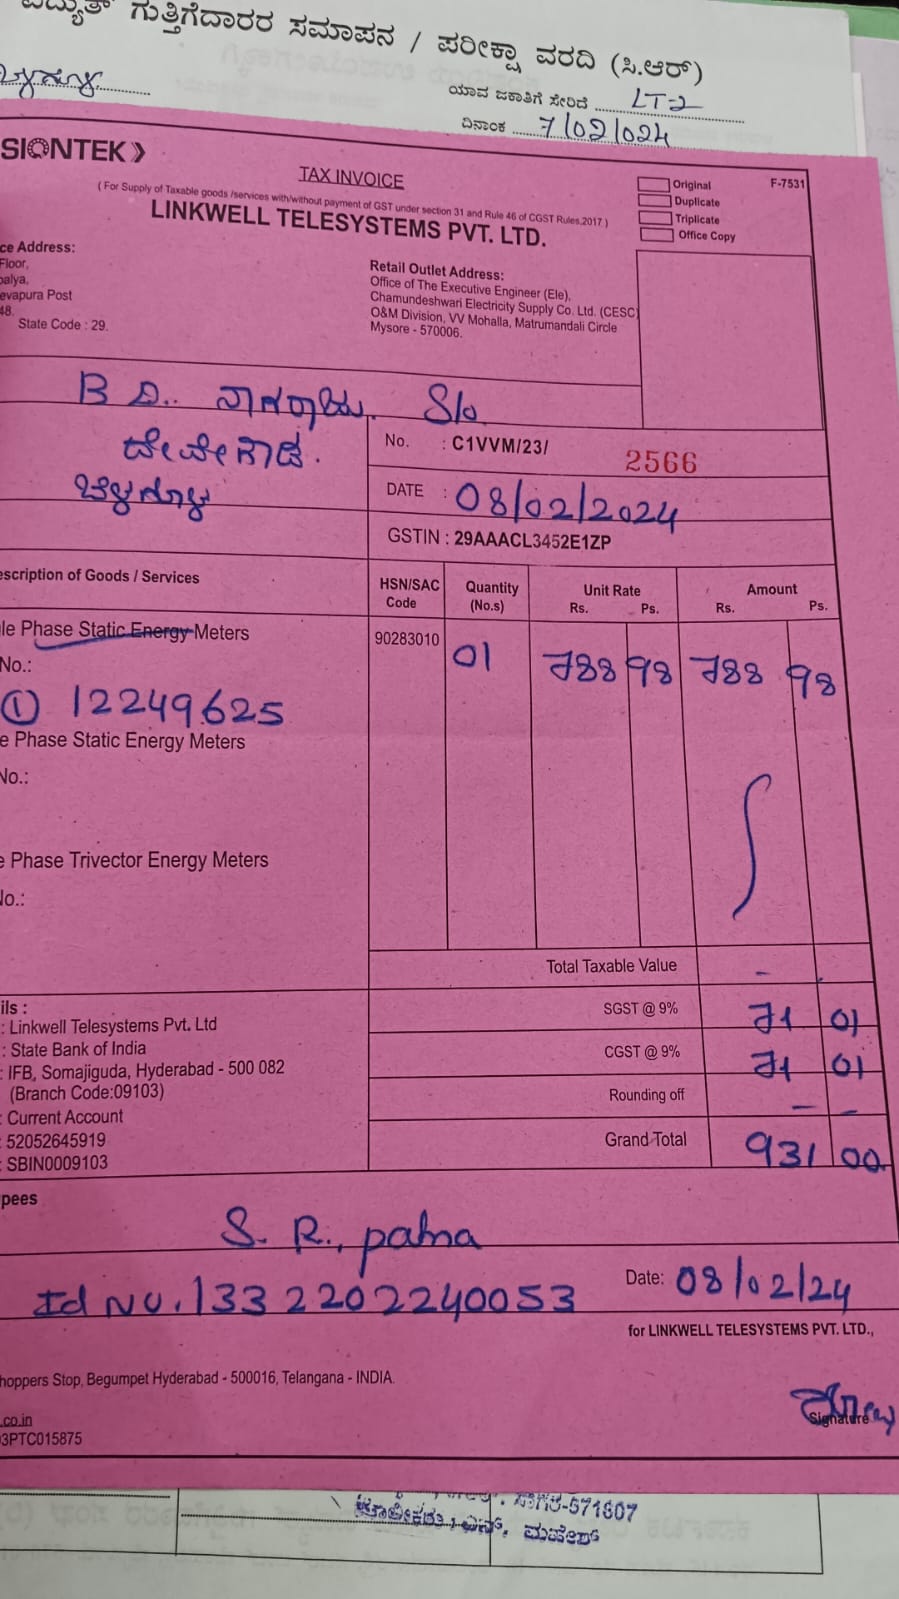 ವಿದ್ಯುತ್ ಗುತ್ತಿಗೆದಾರರ ಸಮಾಪನ / ಪರೀಕ್ಷಾ ವರದಿ (ಸಿ.ಆರ್)
ಯಾವ ಜಕಾತಿಗೆ ಸೇರಿದೆ LT-2
ದಿನಾಂಕ 7/02/024
SIONTEK
TAX INVOICE
F-7531
( For Supply of Taxable goods /services with/without payment of GST under section 31 and Rule 46 of CGST Rules,2017 )
LINKWELL TELESYSTEMS PVT. LTD.
Original
Duplicate
Triplicate
Office Copy
ce Address:
Floor,
palya,
evapura Post
48.
State Code : 29.
Retail Outlet Address:
Office of The Executive Engineer (Ele),
Chamundeshwari Electricity Supply Co. Ltd. (CESC)
O&M Division, VV Mohalla, Matrumandali Circle
Mysore - 570006.
B D.. ನಾಗರಾಜು. S/o
ದೇವೇಗೌಡ.
No. : C1VVM/23/ 2566
DATE : 08/02/2024
GSTIN : 29AAACL3452E1ZP
escription of Goods / Services HSN/SAC Code Quantity (No.s) Unit Rate Rs. Ps. Amount Rs. Ps.
le Phase Static Energy Meters 90283010 01 788 98 788 98
No.:
① 12249625
e Phase Static Energy Meters
No.:
e Phase Trivector Energy Meters
No.:
Total Taxable Value -
SGST @ 9% 71 01
CGST @ 9% 71 01
Rounding off - -
Grand Total 931 00
ils :
: Linkwell Telesystems Pvt. Ltd
: State Bank of India
: IFB, Somajiguda, Hyderabad - 500 082
(Branch Code:09103)
: Current Account
: 52052645919
: SBIN0009103
pees
S. R., patna
Id NO. 1332202240053
Date: 08/02/24
for LINKWELL TELESYSTEMS PVT. LTD.,
hoppers Stop, Begumpet Hyderabad - 500016, Telangana - INDIA.
Signature
.co.in
3PTC015875
571607
ಮಹೇಶ್